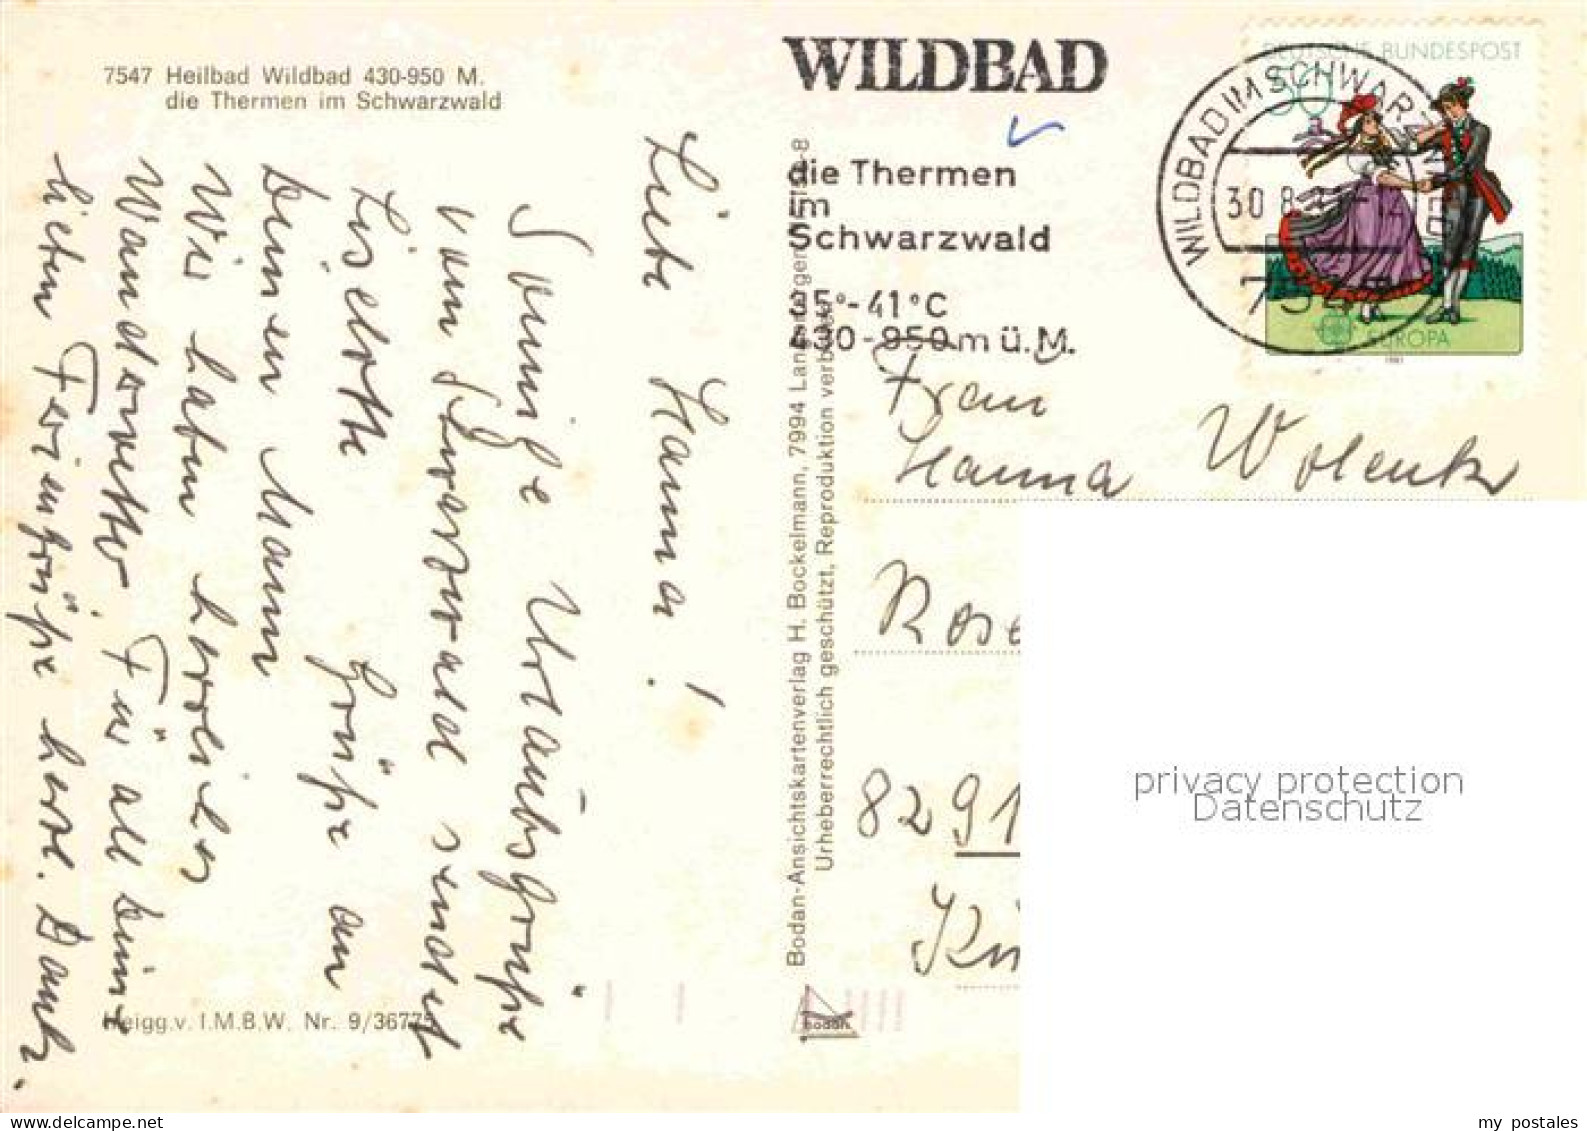 7547 Heilbad Wildbad 430-950 M.
die Thermen im Schwarzwald
Liebe Hanna!
Sonnige Urlaubsgrüße
vom Schwarzwald sendet
Liselotte Grüße an
Deinen Mann
Wir haben herrliches
Wanderwetter Für all Deine
lieben Feriengrüße herzl. Dank.
Freigg.v. I.M.B.W. Nr. 9/36775
Bodan-Ansichtskartenverlag H. Bockelmann, 7994 Langenargen
Urheberrechtlich geschützt, Reproduktion verboten
bodan
WILDBAD
die Thermen
im
Schwarzwald
35°-41°C
430-950 m ü. M.
WILDBAD IM SCHWARZWALD
30.8.
7547
DEUTSCHE BUNDESPOST
EUROPA
1981
Frau
Hanna
Rose
8291
privacy protection
Datenschutz
my postales